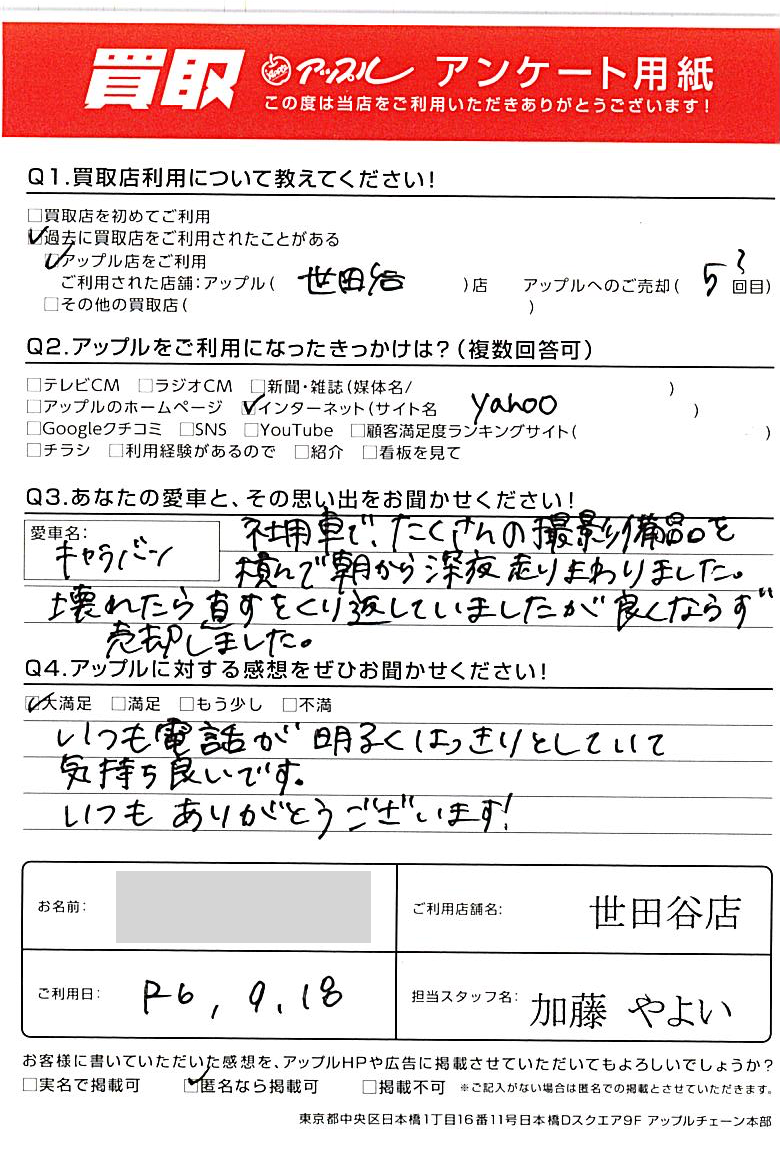 買取 アップル アンケート用紙
この度は当店をご利用いただきありがとうございます!
Q1.買取店利用について教えてください!
□買取店を初めてご利用
☑過去に買取店をご利用されたことがある
☑アップル店をご利用
ご利用された店舗:アップル( 世田谷 )店 アップルへのご売却( 5? 回目)
□その他の買取店( )
Q2.アップルをご利用になったきっかけは?(複数回答可)
□テレビCM □ラジオCM □新聞・雑誌(媒体名/ )
□アップルのホームページ ☑インターネット(サイト名 yahoo )
□Googleクチコミ □SNS □YouTube □顧客満足度ランキングサイト( )
□チラシ □利用経験があるので □紹介 □看板を見て
Q3.あなたの愛車と、その思い出をお聞かせください!
愛車名:
キャラバン
社用車で、たくさんの撮影備品を
積んで朝から深夜走りまわりました。
壊れたら直すをくり返していましたが良くならず
売却しました。
Q4.アップルに対する感想をぜひお聞かせください!
☑大満足 □満足 □もう少し □不満
いつも電話が明るくはっきりとしていて
気持ち良いです。
いつもありがとうございます!
お名前:
ご利用店舗名: 世田谷店
ご利用日: R6, 9.18
担当スタッフ名: 加藤 やよい
お客様に書いていただいた感想を、アップルHPや広告に掲載させていただいてもよろしいでしょうか?
□実名で掲載可 ☑匿名なら掲載可 □掲載不可 ※ご記入がない場合は匿名での掲載とさせていただきます。
東京都中央区日本橋1丁目16番11号日本橋Dスクエア9F アップルチェーン本部